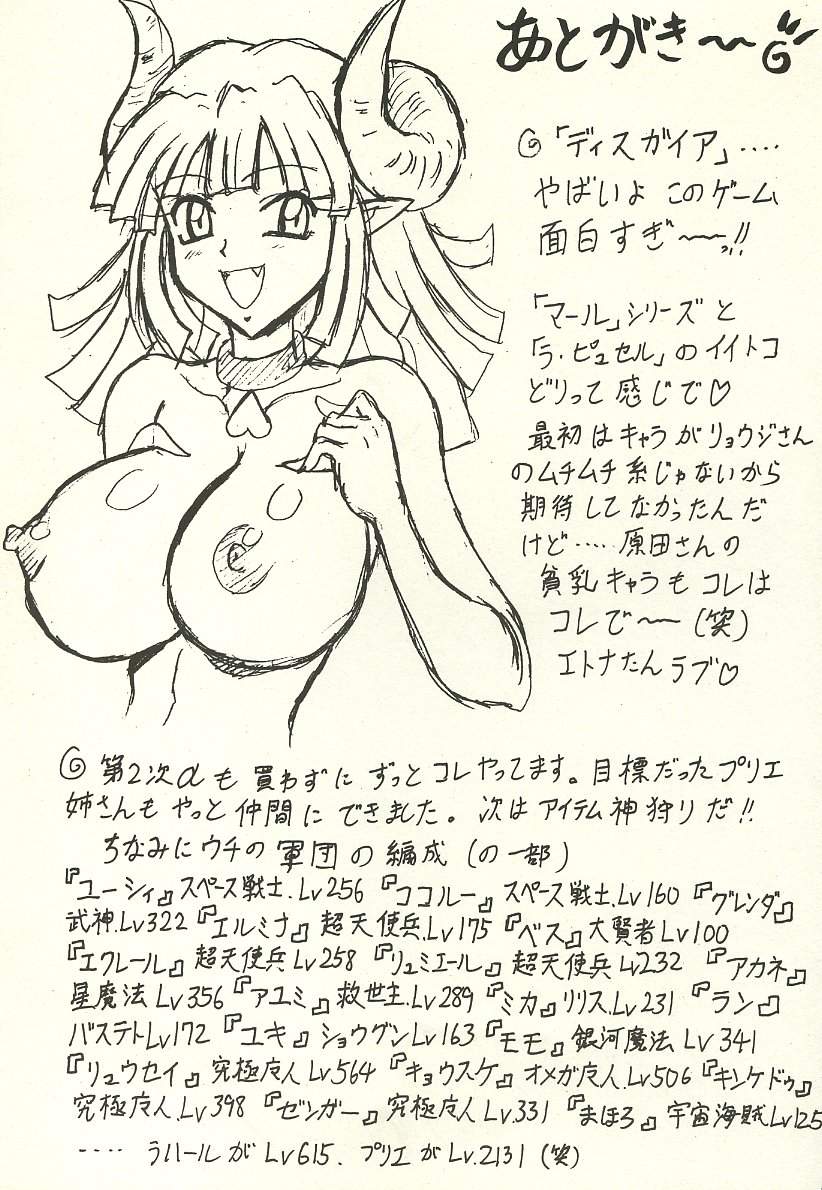 あとがき〜
「ディスガイア」‥‥
やばいよ このゲーム
面白すぎ〜〜っ!!
「マール」シリーズと
「ラ・ピュセル」のイイトコ
どりって感じで♡
最初はキャラがリョウジさん
のムチムチ系じゃないから
期待してなかったんだ
けど‥‥原田さんの
貧乳キャラもコレは
コレで〜(笑)
エトナたんラブ♡
第2次αも買わずにずっとコレやってます。目標だったプリエ
姉さんもやっと仲間にできました。次はアイテム神狩りだ!!
ちなみにウチの軍団の編成(の一部)
『ユーシィ』スペース戦士.Lv256『ココルー』スペース戦士.Lv160『グレンダ』
武神.Lv322『エルミナ』超天使兵.Lv175『ベス』大賢者Lv100
『エクレール』超天使兵Lv258『リュミエール』超天使兵Lv232『アカネ』
星魔法Lv356『アユミ』救世主.Lv289『ミカ』リリス.Lv231『ラン』
バステトLv172『ユキ』ショウグンLv163『モモ』銀河魔法Lv341
『リュウセイ』究極広人Lv564『キョウスケ』オメガ広人.Lv506『キンケドゥ』
究極広人.Lv398『ゼンガー』究極広人Lv331『まほろ』宇宙海賊Lv125
‥‥ラハールがLv615.プリエがLv.2131(笑)